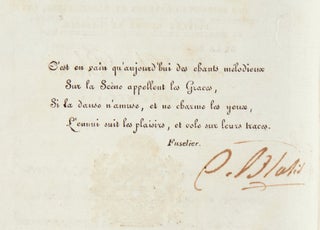 C'est en vain qu'aujourd'hui des chants mélodieux
Sur la Scène appellent les Graces,
Si la danse n'amuse, et ne charme les yeux,
L'ennui suit les plaisirs, et vole sur leurs traces.
Fuselier.
C. Blasis